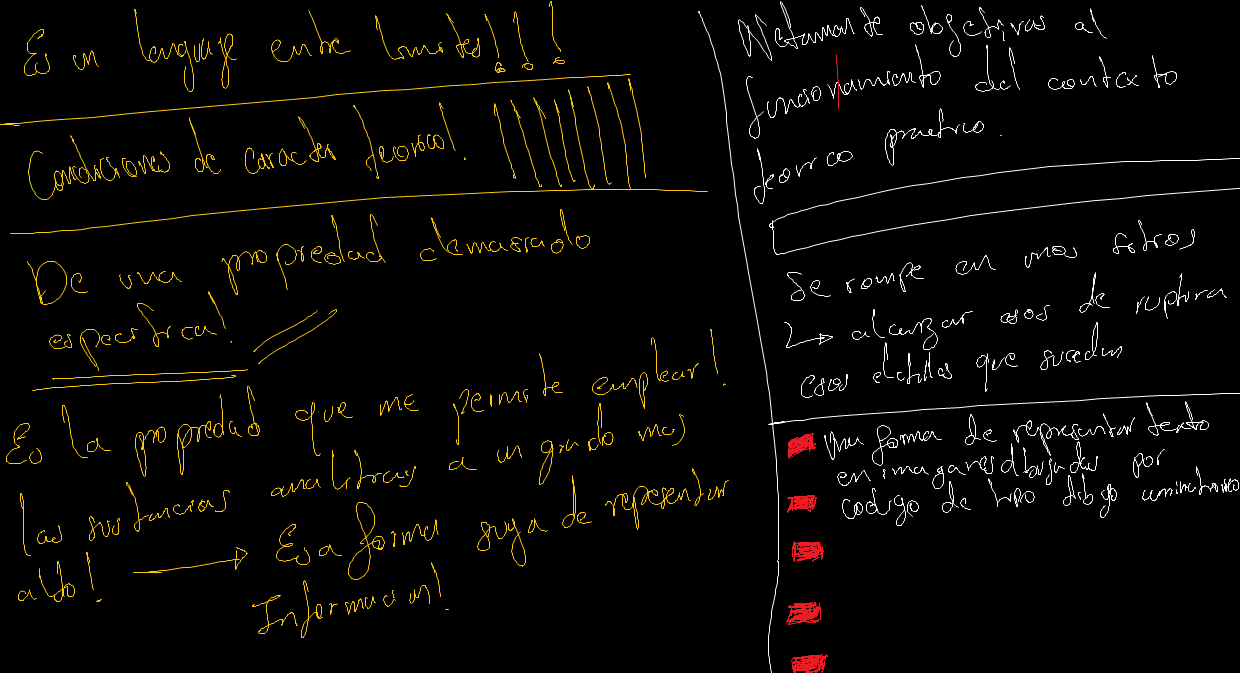 Es un lenguaje entre limites!!!
Condiciones de caracter teorico!
De una propiedad demasiado
especifica!
Es la propiedad que me permite emplear!
las sustancias analiticas a un grado mas
alto! → Esa forma suya de representar
Informacion!
Netamente objetivas al
funcionamiento del contexto
teorico practico.
Se rompe en unos
↳ alcanzar esos de ruptura
esos detalles que suceden
Una forma de representar texto
en imagenes dibujadas por
codigo de tipo dibujo